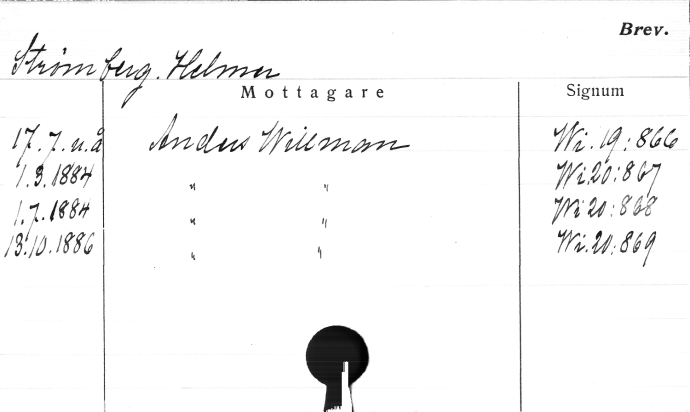 Brev.
Strömberg. Helmer
Mottagare Signum
17.7.u.å Anders Willman Wi. 19:866
1.3.1884 " " Wi.20:867
1.7.1884 " " Wi 20:868
13.10.1886 " " Wi.20:869